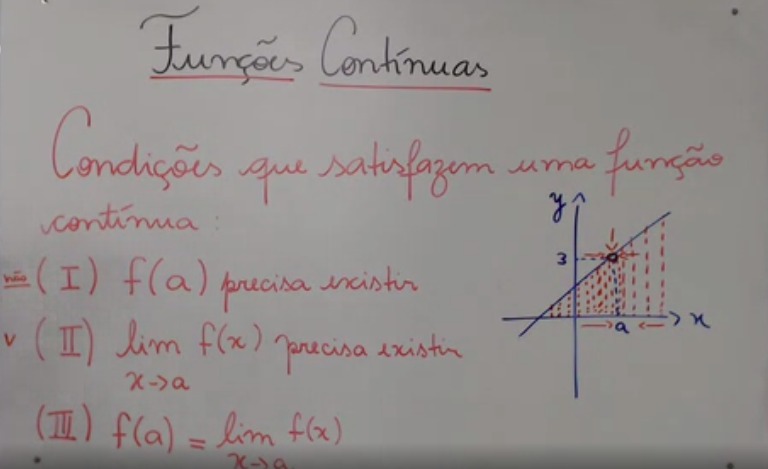 Funções Contínuas
Condições que satisfazem uma função
contínua:
não (I) f(a) precisa existir
v (II) lim f(x) precisa existir
x->a
(III) f(a) = lim f(x)
x->a
y
3
a
x